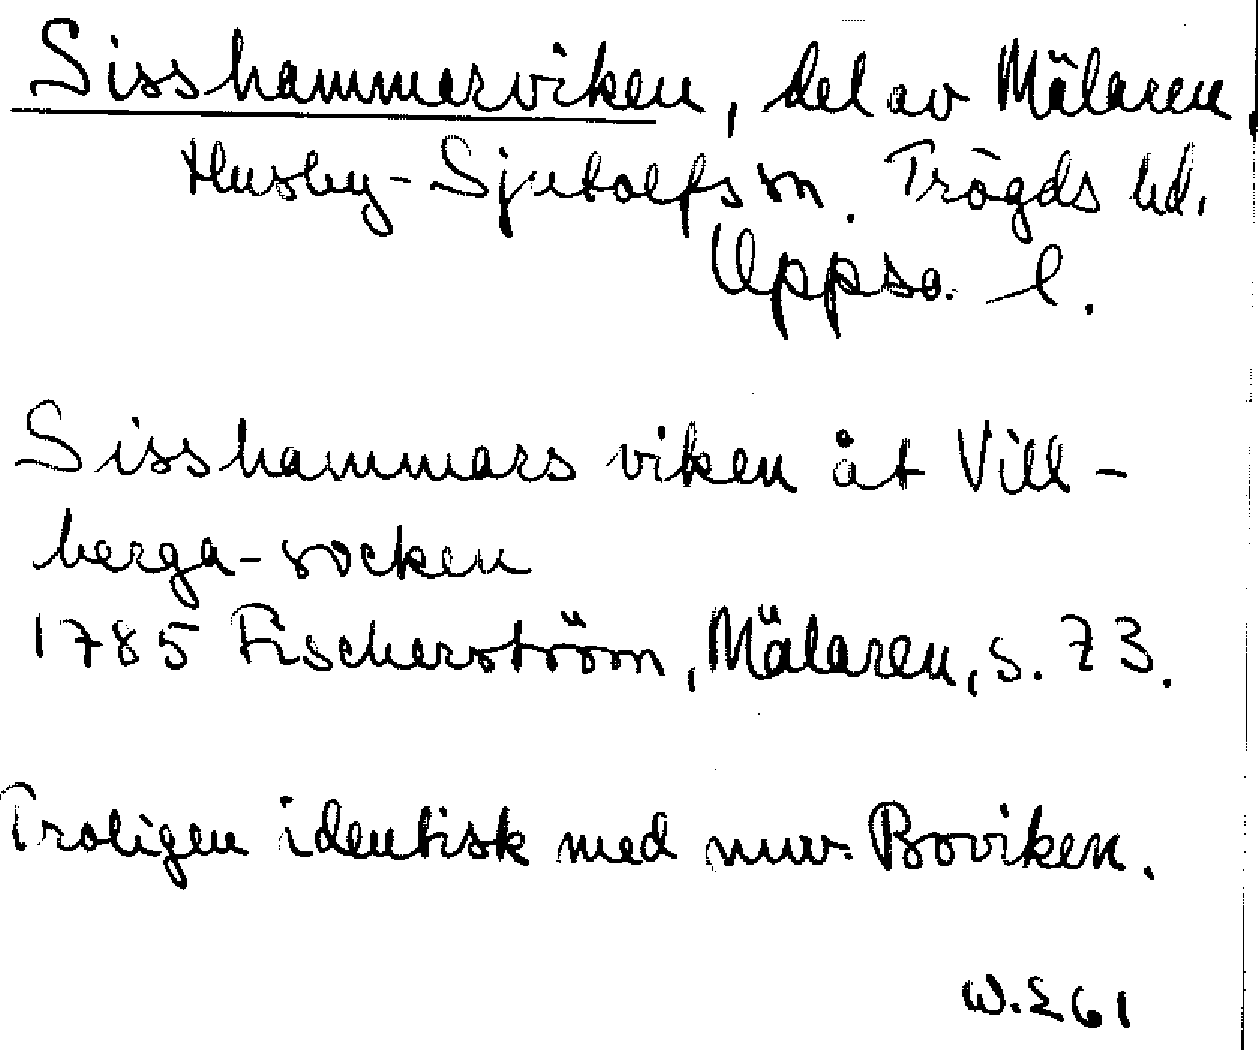 Sisshammarviken, del av Mälaren,
Husby-Sjutolfs sn. Trögds hd.
Uppsa. l.
Sisshammars viken åt Vill-
berga-socken
1785 Fischerström, Mälaren, s. 73.
Troligen identisk med nuv. Boviken.
W.E 61